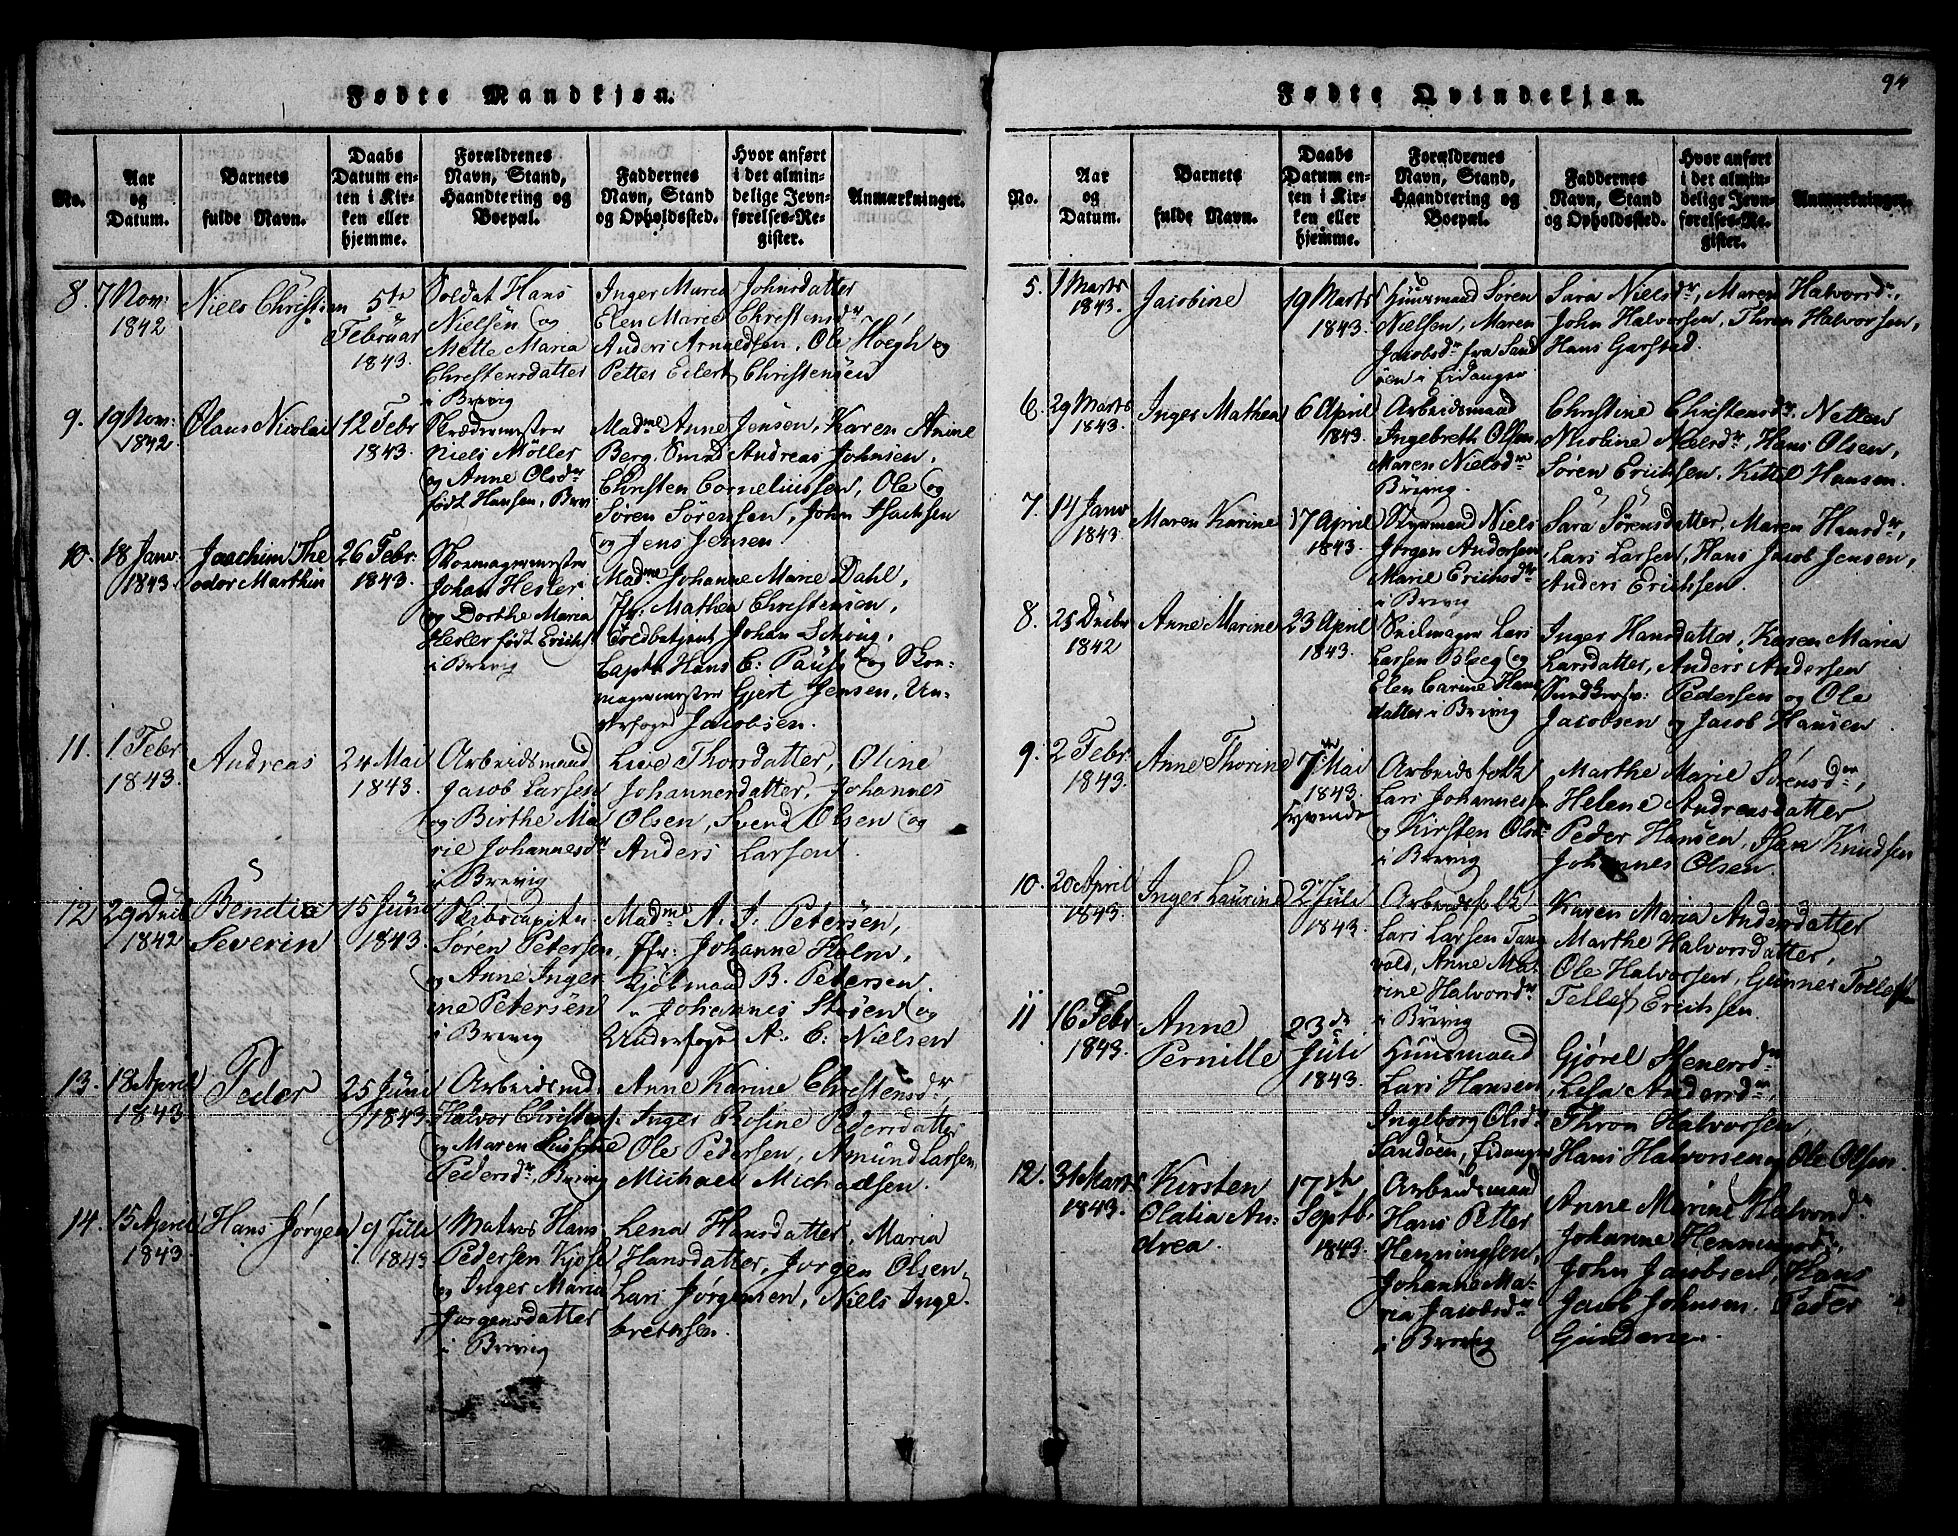 94
Fødte Mandkjøn.
No.
Aar og Datum.
Barnets fulde Navn.
Daabs Datum enten i Kirken eller hjemme.
Forældrenes Navn, Stand, Haandtering og Boepæl.
Faddernes Navn, Stand og Opholdssted.
Hvor anført i det almindelige Jevnførelses-Register.
Anmærkninger.
8. 7 Nov: 1842
Niels Christian
5te Februar 1843.
Soldat Hans
Nielsen og
Mette Maria
Christensdatter
i Brevig
Inger Maria Johnsdatter
Elen Marie Christensdr,
Anders Arnoldsen, Ole Höegh og
Petter Eilert Christensen
9. 19 Nov: 1842
Olaus Nicolai
12 Febr 1843.
Skrædermester
Niels Möller
og Anne Olsdr
født Hansen, Brev
Madme Anne Jensen, Karen Anine
Berg. Smed Andreas Johnsen,
Christen Corneliussen, Ole og
Søren Sørensen, John Isachsen
og Jens Jensen.
10. 18 Janv 1843
Joachim The
odor Marthin
26 Febr 1843.
Skomagermester
Johan Hesler
og Dorthe Maria
Hesler født Erichs
i Brevig
Madme Johanne Marie Dahl,
Jfr: Mathea Christensen,
Toldbetjent Johan Schöug,
Captn Hans C: Pauss og Sko-
magermester Gjert Jensen, Un-
derfoged Jacobsen.
11. 1 Febr 1843.
Andreas
24 Mai 1843.
Arbeidsmand
Jacob Larsen
og Birthe Ma
rie Johannesdr
i Brevig
Live Thorsdatter, Oline
Johannesdatter, Johannes
Olsen, Svend Olsen og
Anders Larsen.
12 29 Decbr 1842
Bendix
Severin
15 Juni 1843.
Skibscapitn.
Søren Petersen,
og Anne Inger
ine Petersen
i Brevig
Madme A. J. Petersen,
Jfr: Johanne Holm,
Kjøbmand B. Petersen.
" Johannes Støren og
Underfoged A. C. Nielsen
13. 18 April 1843
Peder
25 Juni 1843.
Arbeidsmd
Halvor Christens.
og Maren
Pedersdr, Brevig
Anne Karine Christensdr,
Inger Rosine Pedersdatter
Ole Pedersen, Amund Larsen,
Michael Michaelsen.
14. 15 April 1843.
Hans Jørgen
9 Juli 1843
Matros Hans
Pedersen
og Inger Maria
Jørgensdatter
i Brevig
Lena Hansdatter, Maria
Hansdatter, Jørgen Olsen,
Lars Jørgensen, Niels Inge-
bretsen.
Fødte Qvindekjøn.
No.
Aar og Datum.
Barnets fulde Navn.
Daabs Datum enten i Kirken eller hjemme.
Forældrenes Navn, Stand, Haandtering og Boepæl.
Faddernes Navn, Stand og Opholdssted.
Hvor anført i det almindelige Jevnførelses-Register.
Anmærkninger.
5. 1 Marts 1843.
Jacobine
19 Marts 1843.
Huusmand Søren
Nielsen, Maren
Jacobsdr fra Sand
øen i Eidanger
Sara Nielsdr, Maren Halvorsdr,
John Halvorsen, Thron Halvorsen,
Hans Garstad.
6. 29 Marts 1843.
Inger Mathea
6 April 1843.
Arbeidsmand
Ingebreth Olsen,
Maren Nielsdr
Brevig.
Christine Christensdr,
Nicoline Nielsdr, Hans Olsen,
Søren Erichsen, Kittel Hansen.
7. 14 Janv 1843.
Maren Karine
17 April 1843.
Styrmand Niels
Jørgen Andersen
Marie Erichsdr
i Brevig
Sara Sørensdatter, Maren Hansdr,
Lars Larsen, Hans Jacob Jensen,
Anders Erichsen.
8. 25 Decbr 1842
Anne Marine
23 April 1843.
Seilmager Lars
Larsen Bloeg og
Elen Carine Hans
datter i Brevig
Inger Hansdatter, Karen Maria
Larsdatter, Anders Andersen
Pedersen og Ole
Jacobsen og Jacob Hansen
9. 2 Febr. 1843.
Anne Thorine
7 Mai 1843.
syvende
Arbeidsfolk
Lars Johannessen
og Kirsten Olsdr
i Brevig
Marthe Marie Sørensdr,
Helene Andreasdatter
Peder Hansen, Isak Knudsen
Johannes Olsen.
10. 20 April 1843.
Inger Laurine
2 Juli 1843.
Arbeidsfolk
Lars Larsen Tang
vold, Anne Mat
rine Halvorsdr
i Brevig
Karen Maria Andersdatter
Marthe Halvorsdatter,
Ole Halvorsen, Gunner Tollefsen
Tellef Erichsen.
11 16 Febr 1843.
Anne
Pernille
23de Juli 1843.
Huusmand
Lars Hansen
Ingeborg Olsdr
Sandøen, Eidanger
Gjørel Stenersdr
Lisa Andersdr,
Thron Halvorsen,
Hans Halvorsen og Ole Olsen.
12. 31 Marts 1843.
Kirsten
Olalia An-
drea.
17de Septbr 1843.
Arbeidsmand
Hans Petter
Henningsen,
Johanne Ma-
ria Jacobsdr
i Brevig
Anne Marine Halvorsdr
Johanne Henningsdr,
John Jacobsen, Hans
Jacob Johnsen. Peder
Gundersen.